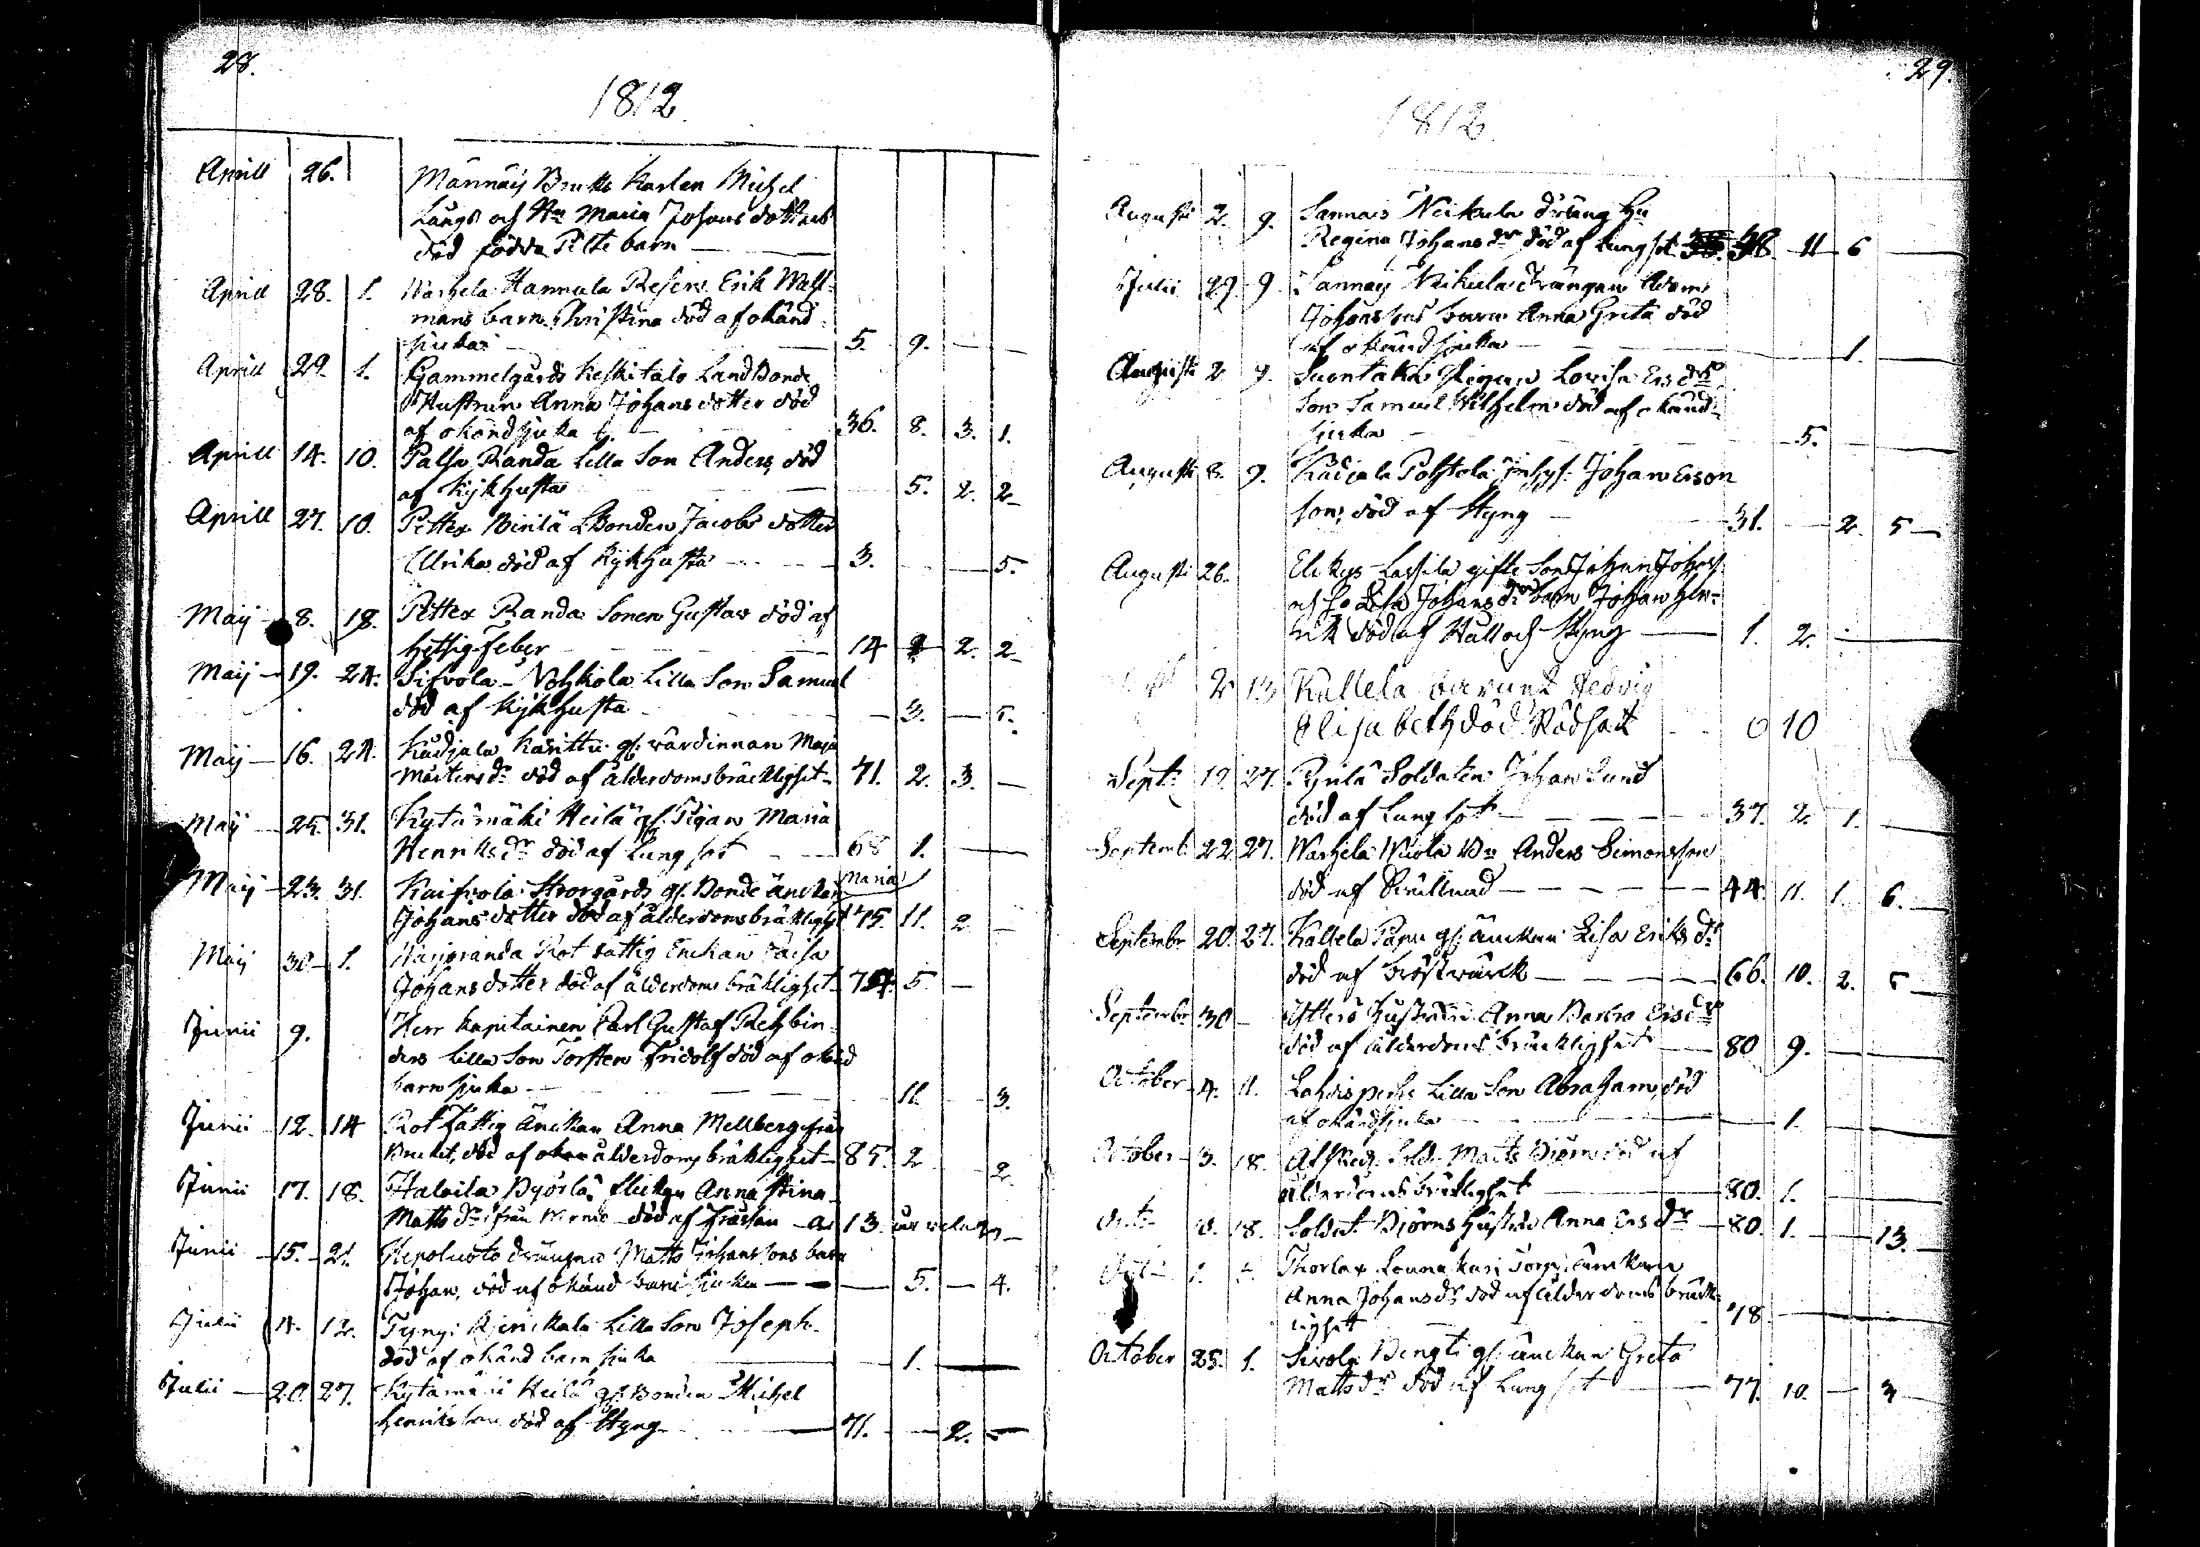 28.
1812
Aprill 26. Männäis Bruks Karlen Michel
Långs och Hu Maria Johans dotters
död födda Pilte barn
Aprill 28. 1. Warhela Hannula Reserv Erik Wass-
mans barn Christina död af okänd
sjuka 5. 9.
Aprill 29. 1. Gammelgårds Keskitalo Land Bonde
Hustrun Anna Johans dotter död
af okänd sjuka 36. 8. 3. 1.
Aprill 14. 10. Palsa Randa Lilla Son Anders, död
af Kikhusta 5. 2. 2
Aprill 27. 10. Pettex LBonden Jacobs dotter
Ulrika död af Kikhusta 3. 5.
Maij 8. 18. Pettex Randa Sonen Gustav död af
hettsig feber 14 2. 2
Maij 19. 24. Sifvola Nohkola Lilla Son Samuel
död af Kikhusta 3. 5.
Maij 16. 24. Kadjala Karittu gl: värdinnan Maja
Mårtens dr död af ålderdomsbräcklighet 71. 2. 3.
Maij 25. 31. Kytämäki Heilä gl. Pigan Maria
Henriks dr död af Lungsot 68 1.
Maij 23. 31. Kaifvola Storgårds gl. Bonde änckan Maria
Johans dotter död af ålderdomsbräklighet 75. 11. 2
Maij 30 1. Harjoranda Rot fattig Enckan Caisa
Johans dotter död af ålderdoms bräklighet 74. 5.
Junii 9. Herr Kapitainen Carl Gustaf Rehbin-
ders Lilla Son Torsten Fridolf död af okänd
barn sjuka 11. 3.
Junii 12. 14 Rot Fattig Änckan Anna Mellberg ifrån
Bruket, död af ålderdoms bräklighet 85. 2 2
Junii 17. 18. Halaila Flickan Anna Stina
Matts dr ifrån död af frässan 13.
Junii 15. 21. Hepoluoto drängens Matts Johanssons barn
Johan, död af okänd barn sjuka 5. 4.
Julii 4. 12. Lilla Son Joseph
död af okänd barn sjuka 1.
Julii 20. 27. Kytämäki Heilä gl. Bonden Michel
Henriksson död af Styng 71. 2.
29.
1812.
Augusti 2. 9. Sannais Neikula dräng Hu
Regina Johans dr död af Lungsot 38 11 6
Julii 29. 9. Sannais Neikula drängen Adam
Johanssons barn Anna Greta död
af okänd sjuka 1.
Augusti 2 9. Suontaka Pigan Lovisa Ers drs
Son Samuel Wilhelm död af okänd
sjuka 5.
Augusti 2. 9. Kadjala Pohtola Inhys: Johan Erson
son, död af Styng 31. 2. 5
Augusti 26. Elikys Lassila gifte Son Johan Johans
och Hu Lisa Johans drs barn Johan Hen-
rik död af Håll och Styng 1. 2.
2 13 Kallela barnet Hedvig
Elisabeth död Rödsot 0 10
Septr 19. 27. Soldaten Johan Lund
död af Lungsot 37. 2. 1.
Septemb 22. 27. Warhela Anders Simonsson
död af 44. 11. 1. 6.
Septembr 20. 27. Kallela Papu gl: änckan Lisa Eriks dr
död af bröstvärck 66. 10. 2. 5
Septembr 30 hustrun Anna Ers dr
död af ålderdoms bräcklighet 80 9.
October 4. 11. Lahdisperhe Lilla Son Abraham, död
af okänd sjuka 1.
October 3. 18. Afsked: Sold. Matts Björn död af
ålderdoms bräklighet 80. 1.
18. Soldat Björns hustru Anna Ers dr 80. 1. 13.
Thorlax änckan
Anna Johans dr död af ålderdoms bräck-
lighet 78
October 25. 1. Sivola Bengti gl: änckan Greta
Matts dr död af Lungsot 77. 10. 3